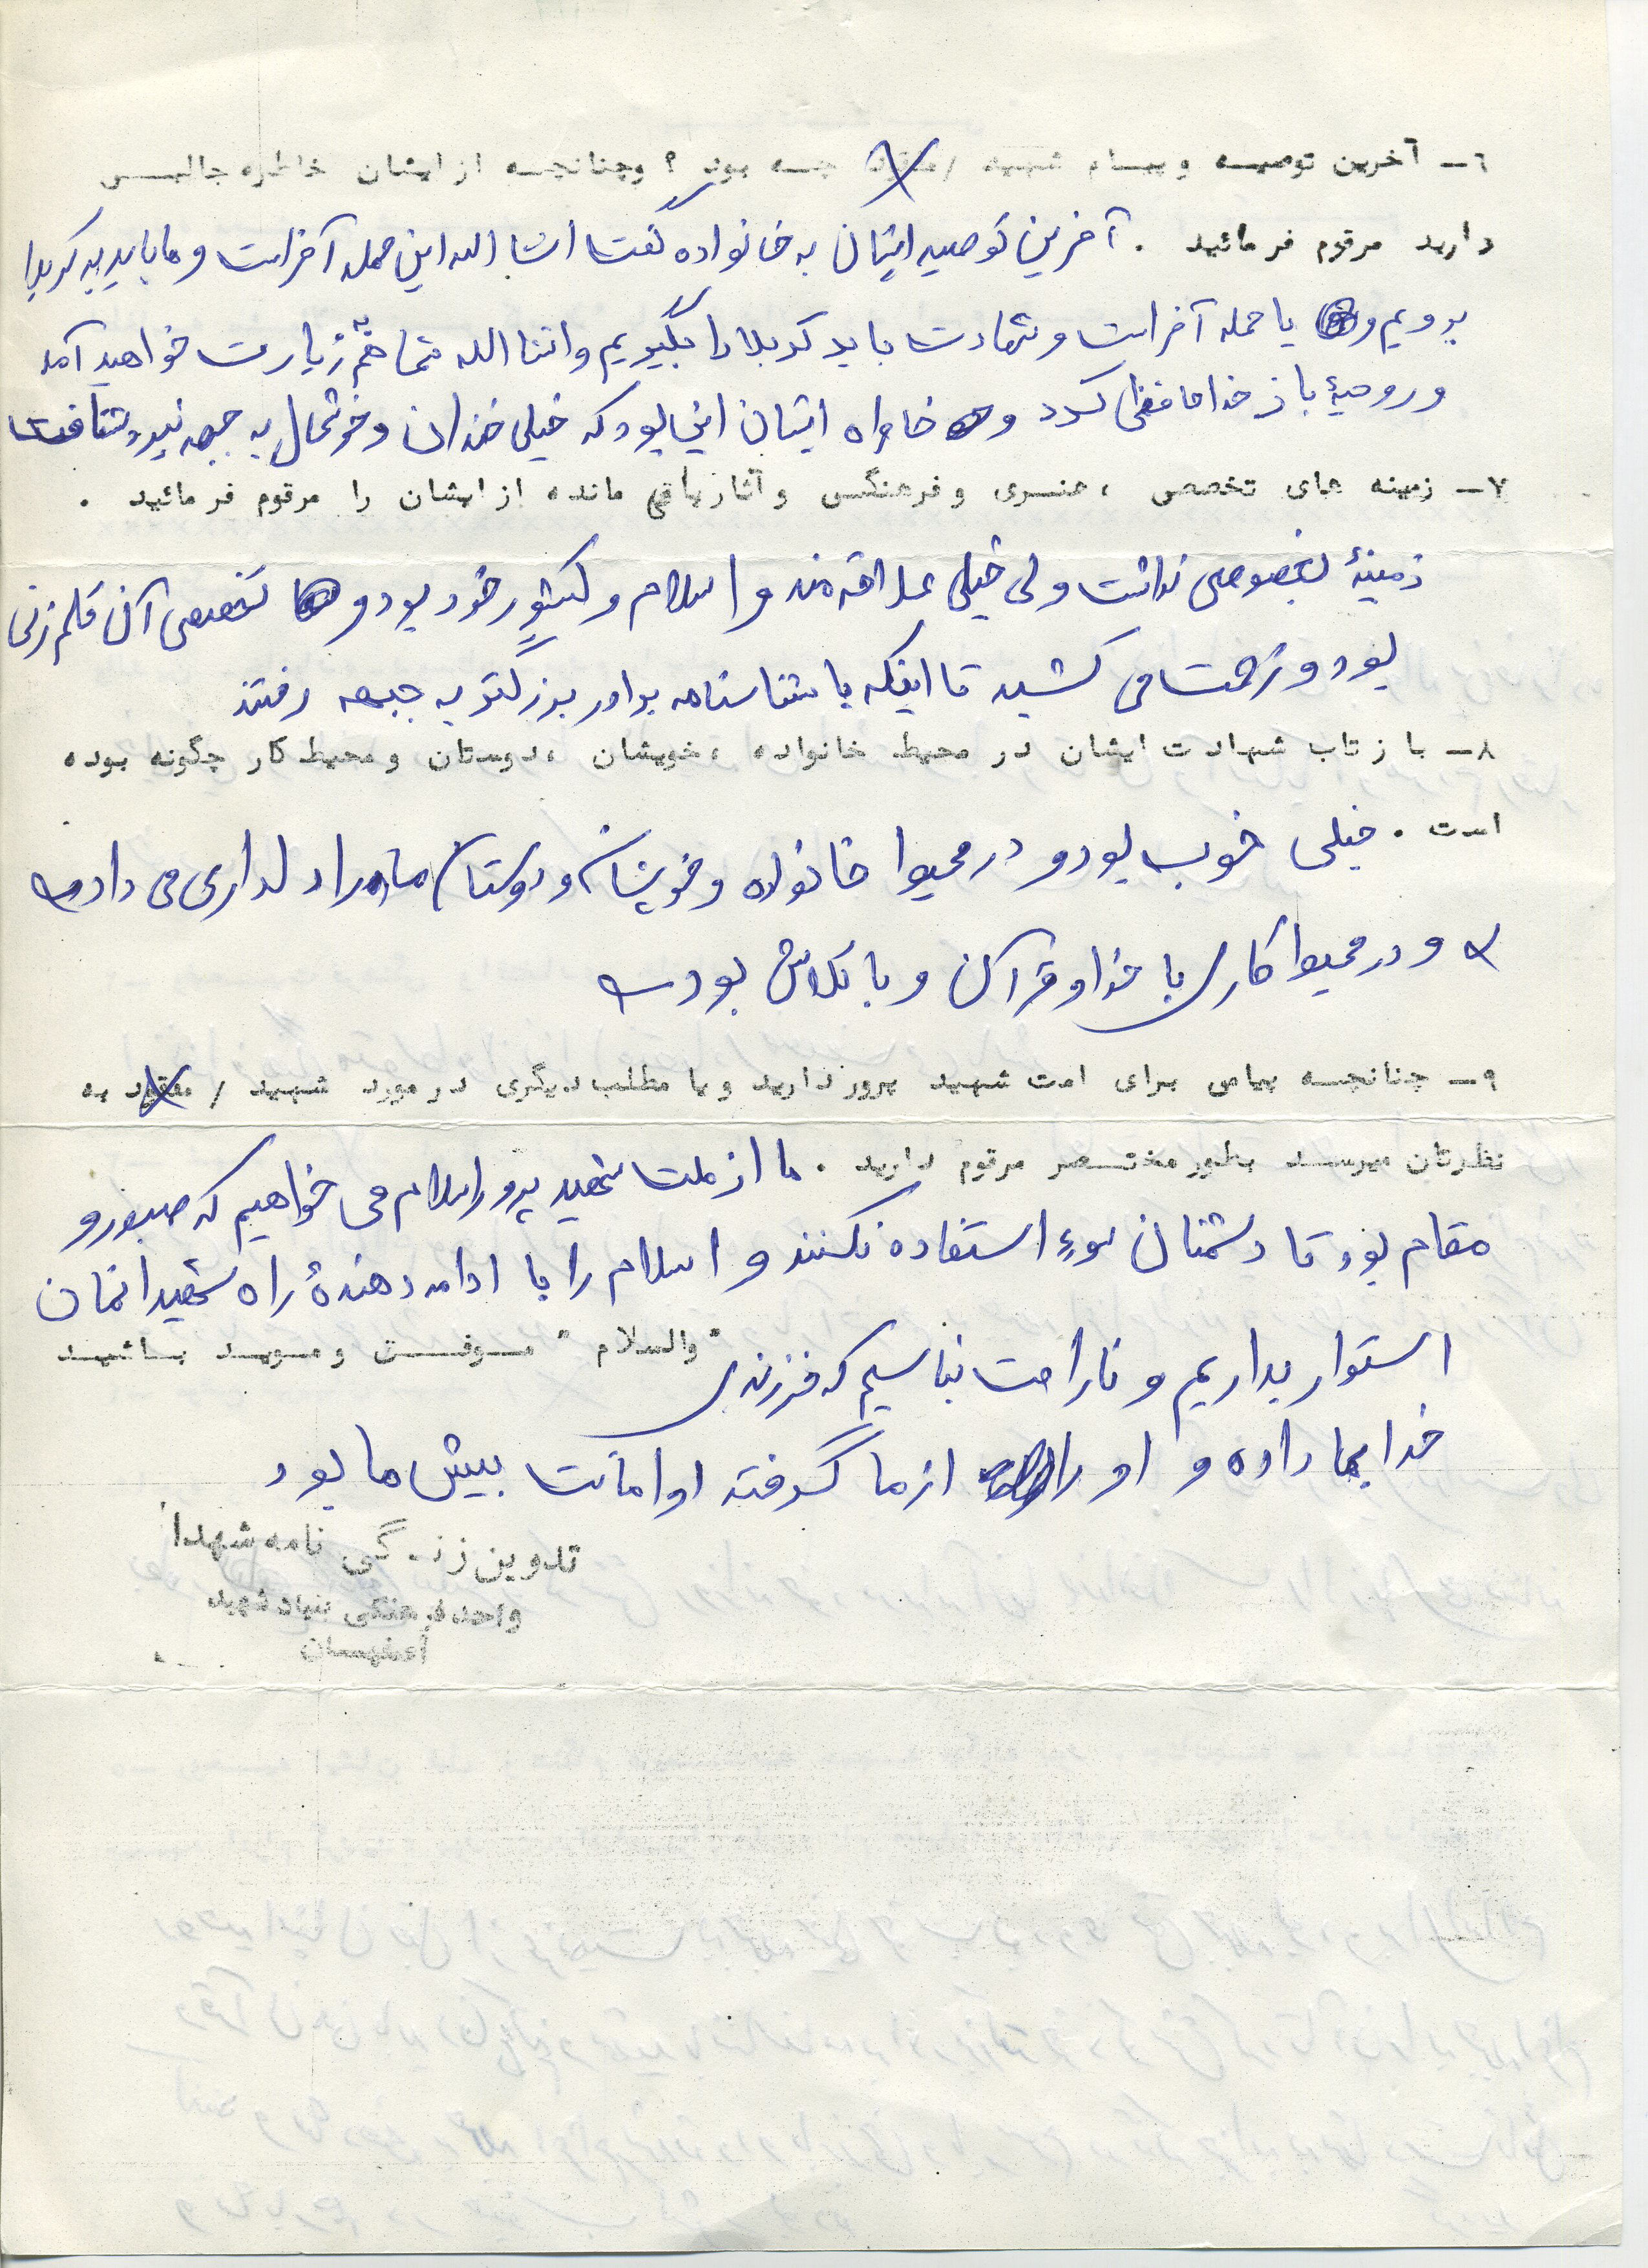 ٦ــ آخرین توصیه و پیام شهید / مفقود چه بود ؟ و چنانچه از ایشان خاطره جالبی
دارید مرقوم فرمائید . آخرین توصیه ایشان به خانواده گفت انشا الله این حمله آخر است و ما باید به کربلا
برویم و یا حمله آخر است و شهادت باید کربلا را بگیریم و انشا الله شما هم زیارت خواهید آمد
و روحیهٔ باز خداحافظی کرد و خاطراه ایشان این بود که خیلی خندان و خوشحال به جبهه نبرد شتافت
٧ــ زمینه های تخصصی ، هنری و فرهنگی و آثار باقی مانده از ایشان را مرقوم فرمائید .
زمینهٔ بخصوصی نداشت ولی خیلی علاقه مند و اسلام و کشور خود بود و تخصصی آن قلم زنی
بود و زحمت می کشید تا اینکه با شناسنامه برادر بزرگتر به جبهه رفتند
٨ــ بازتاب شهادت ایشان در محیط خانواده ، خویشان ، دوستان و محیط کار چگونه بوده
است . خیلی خوب بود و در محیط خانواده و خویشان و دوستان مادر را دلداری می داد
و در محیط کاری با خدا و قرآن و با تلاش بود
٩ــ چنانچه پیامی برای امت شهید پرور دارید و یا مطلب دیگری در مورد شهید / مفقود به
نظرتان میرسد بطور مختصر مرقوم دارید . ما از ملت شهید پرور اسلام می خواهیم که صبور و
مقام بود تا دشمنان سوء استفاده نکنند و اسلام را با ادامه دهندهٔ راه شهیدانمان
استوار بداریم و ناراحت نباشیم که فرزندی " والسلام " موفق و موید باشید
خدا بما داده و او را از ما گرفته او امانت پیش ما بود
تدوین زندگی نامه شهدا
واحد فرهنگی بنیاد شهید
اصفهان